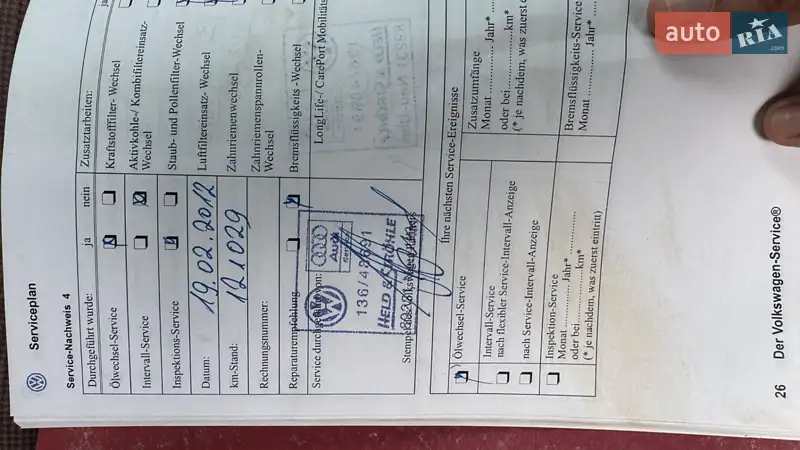 Serviceplan
Service-Nachweis 4
Durchgeführt wurde:
ja
nein
Ölwechsel-Service
Intervall-Service
Inspektions-Service
Datum:
19.02.2012
km-Stand:
121029
Rechnungsnummer:
Reparaturempfehlung
Service durchgeführt von:
Audi
Service
136/48691
HELD & STRÖHLE
Zusatzarbeiten:
ja
Kraftstofffilter- Wechsel
Aktivkohle-/ Kombifiltereinsatz-
Wechsel
Staub- und Pollenfilter-Wechsel
Luftfiltereinsatz- Wechsel
Zahnriemenwechsel
Zahnriemenspannrollen-
Wechsel
Bremsflüssigkeits -Wechsel
LongLife-/ CarePort Mobilitäts
Ihre nächsten Service-Ereignisse
Ölwechsel-Service
Intervall-Service
nach flexibler Service-Intervall-Anzeige
nach Service-Intervall-Anzeige
Inspektion-Service
Monat ............... Jahr*
oder bei...............km*
(* je nachdem, was zuerst eintritt)
Zusatzumfänge
Monat ............... Jahr*
oder bei...............km*
(* je nachdem, was zuerst e
Bremsflüssigkeits-Service
Monat ............... Jahr*
26
Der Volkswagen-Service®
auto
RIA
.com